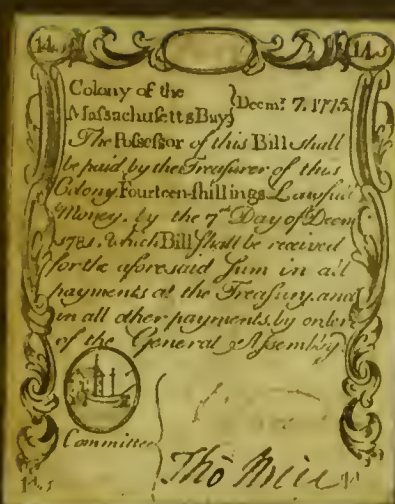 14s 14s
Colony of the
Massachusetts Bay } Decmr. 7. 1775.
The Possessor of this Bill shall
be paid by the Treasurer of this
Colony Fourteen-shillings Lawful
Money. by the 7th Day of Decm
1781. which Bill shall be received
for the aforesaid Sum in all
payments at the Treasury, and
in all other payments, by order
of the General Assembly
Committee
14s
Tho